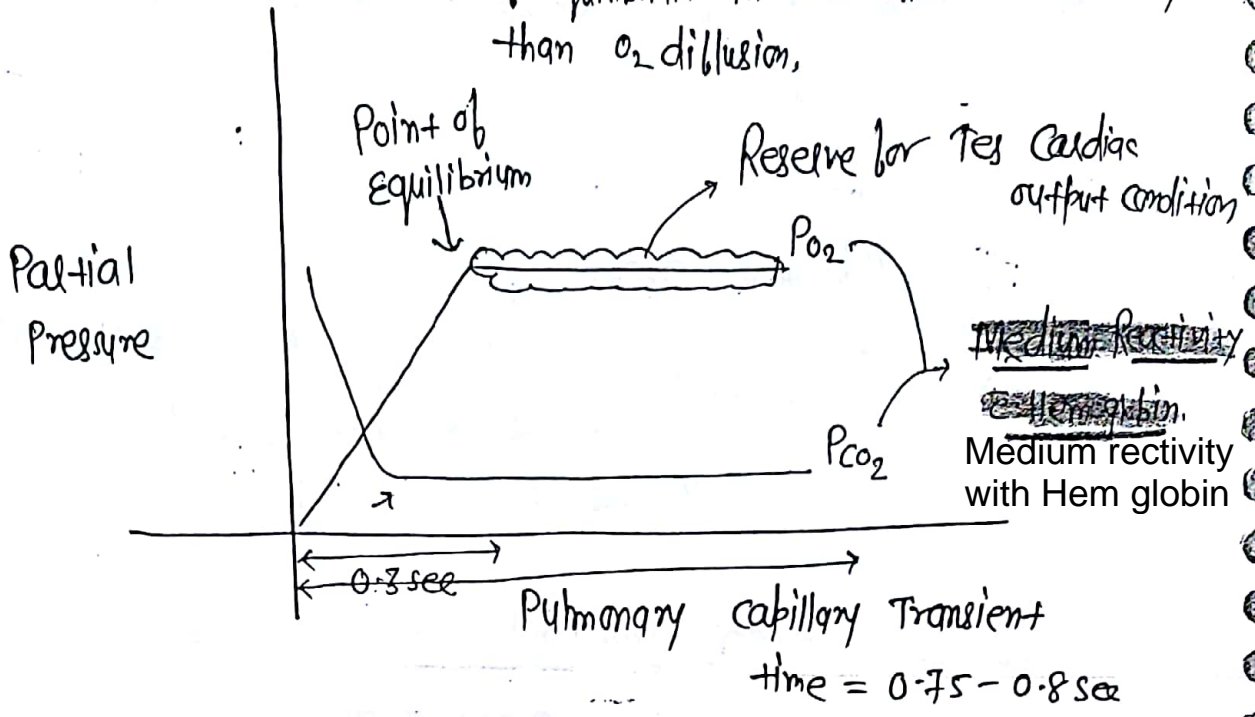 than O₂ dillusion,
Point of
Equilibrium
Reserve for ↑es Cardiac
output condition
Partial
Pressure
PO₂
Medium Reactivity
c̄ Hem globin.
PCO₂
Medium rectivity
with Hem globin
0.3 sec
Pulmonary capillary Transient
time = 0.75 - 0.8 sec